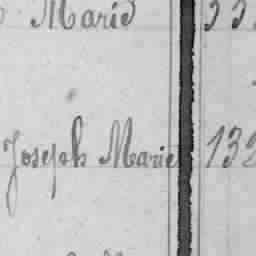 Marie 33
Joseph Marie 132